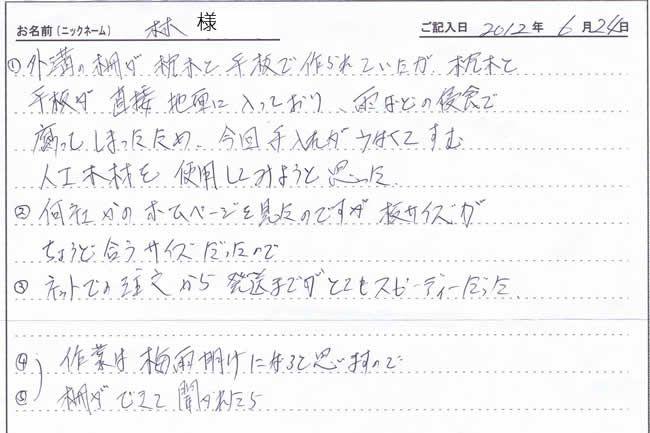 お名前(ニックネーム) 林 様 ご記入日 2012年 6月24日
①外溝の柵が枕木と平板で作られていたが枕木と
平板が直接地面に入っており、雨などの侵食で
腐ってしまったため、今回手入れが少なくてすむ
人工木材を使用してみようと思った
②何社かのホームページを見たのですが板サイズが
ちょうど合うサイズだったので
③ネットでの注文から発送までがとてもスピーディーだった。
④ 作業は梅雨明けになると思いますので
⑤ 柵ができて聞かれたら